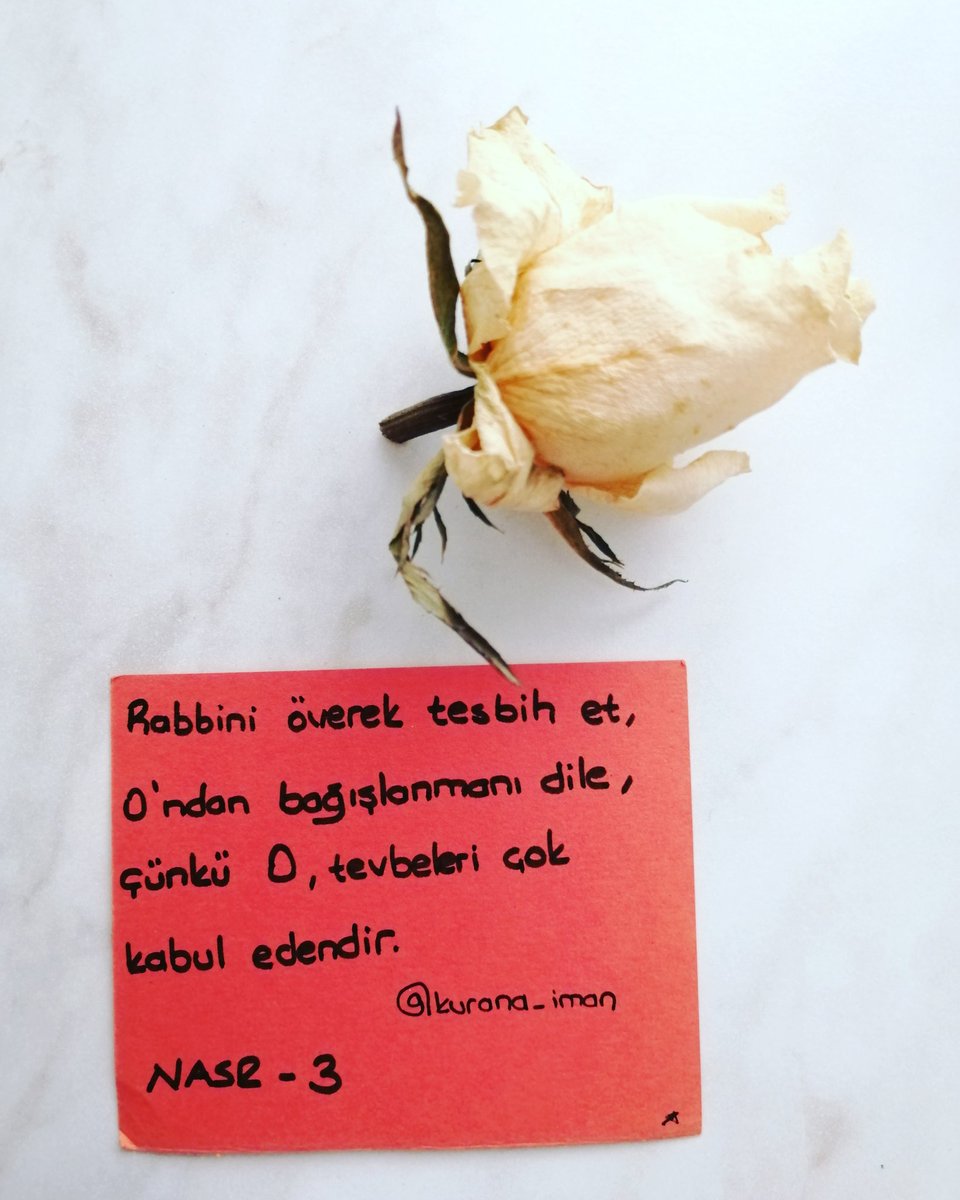 Rabbini överek tesbih et,
O'ndan bağışlanmanı dile,
çünkü O, tevbeleri çok
kabul edendir.
@kurana_iman
NASR - 3